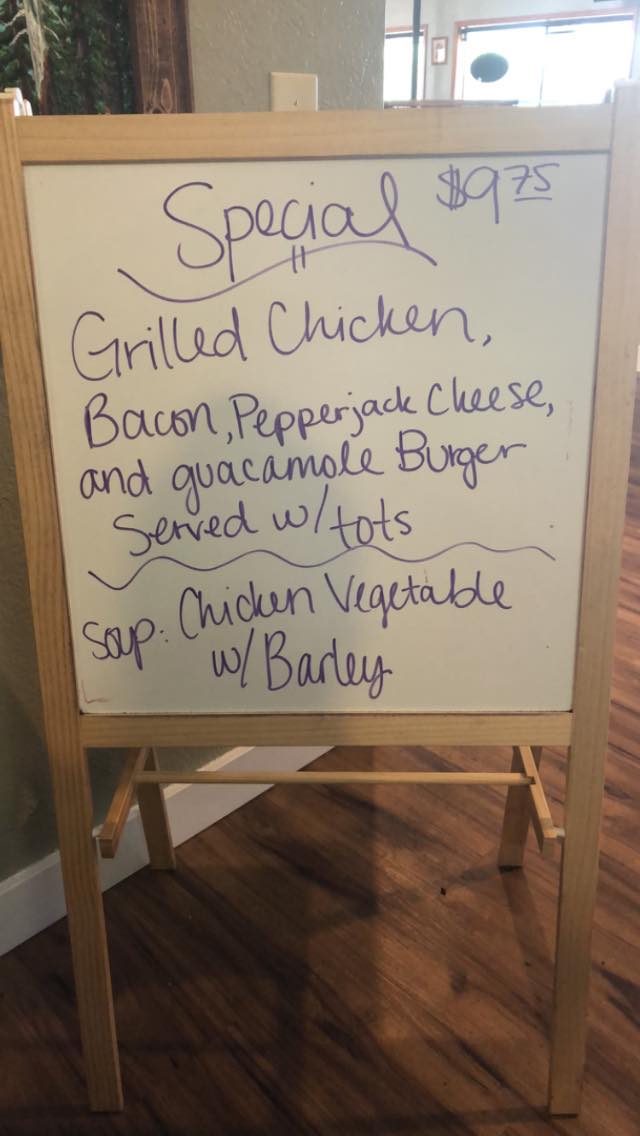 Special $9.75
Grilled Chicken,
Bacon, Pepperjack Cheese,
and guacamole Burger
Served w/ tots
Soup: Chicken Vegetable
w/ Barley